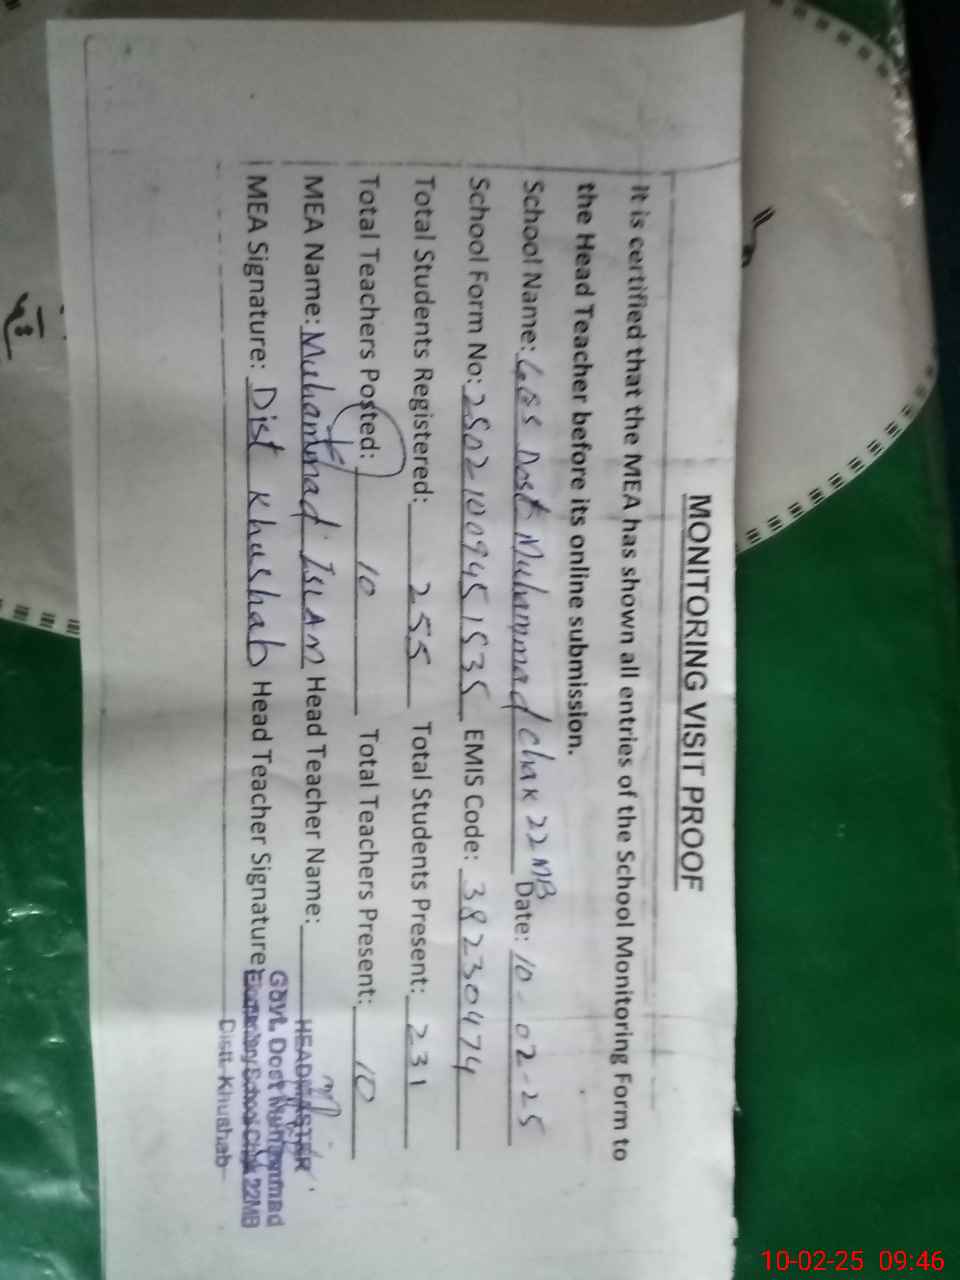 MONITORING VISIT PROOF
It is certified that the MEA has shown all entries of the School Monitoring Form to
the Head Teacher before its online submission.
School Name: GES Dost Muhammad Chak 22 MB Date: 10-02-25
School Form No: 25021009451535 EMIS Code: 38230474
Total Students Registered: 255 Total Students Present: 231
Total Teachers Posted: 10 Total Teachers Present: 10
MEA Name: Muhammad ISLAM Head Teacher Name:
MEA Signature: Dist Khushab Head Teacher Signature:
HEADMASTER
Govt. Dost Muhammad
Elementary School Chak 22MB
Distt. Khushab
10-02-25 09:46